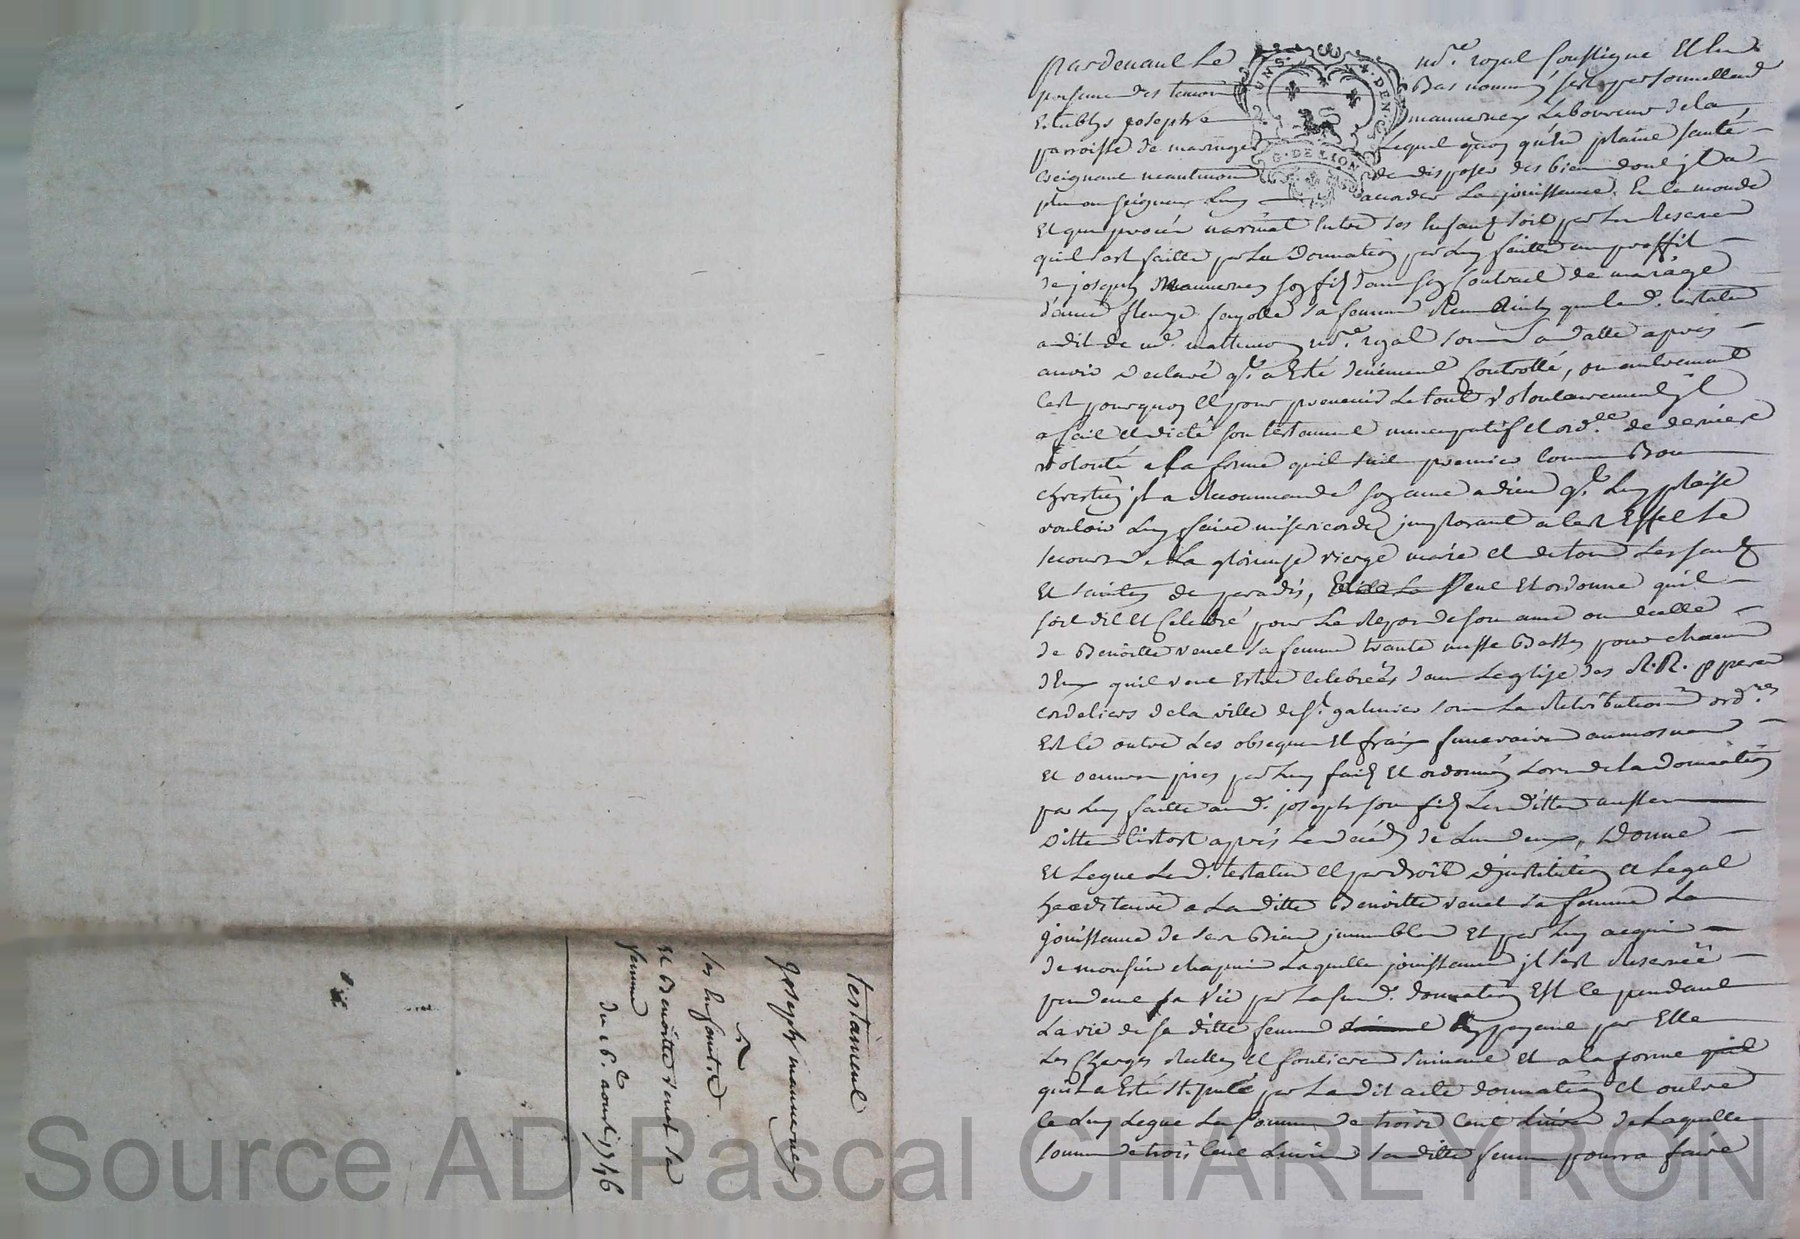 pardevant Le nore royal soussigne Et En
presence des temoin Bas nommés fut personnellement
Establys joseph mauverney Laboureur de la
parroisse de maringes Lequel quoy qu'en plaine santé
Creignant neantmoins de disposer des bien dont jl a
plu au seigneur Luy accorder La jouissance En ce monde
Et que procès entre ses Enfans soit par La Reserve
quil s'est faitte par La Donnation par Luy faitte au proffit
de joseph Mauverney son fils dans son Contrat de mariage
d'avec fleurye fayolle sa femme Reçu que led. testateur
a dit de me. nore. royal sous sa datte après
avoir declaré qe. a Esté deüement Controllé, ou autrement
C'est pourquoy Et pour prevenir Le tout volontairement jl
a fait Et dicté son testament nuncupatif Et ordce de derniere
volonté a La forme quil suit premier Comme Bon
Chrestien jl a Recommandé son ame a dieu qe. Luy plaise
vouloir Luy faire misericorde jmplorant a cest Effet Le
secours de La glorieuse vierge marie Et de tous Les saints
Et saintes de paradis, Veut Et ordonne quil
soit dit Et Celebré pour Le Repos de son ame ou de celle
de Benoitte venet sa femme trante messe Basses pour chacun
d'Eux quil veut Estre celebrées dans L'eglise des R.R. p peres
cordeliers de la ville de St. galmier sous La Retribution ordres
Est ce outre Les obseques Et fraix funeraires aumosnes
Et oeuvres pies par Luy faits Et ordonnés Lors de la Donnation
par Luy faitte aud. joseph son fils Les dittes messes
Dittes tost après Le decés de L'un d'eux, Donne
Et Legue Le d. testateur Et par droit d'institution Et Legat
hereditaire a La ditte Benoitte venet sa femme La
jouissance de ses Biens jmmeubles Et par Luy acquis
de monsieur chapuis Laquelle jouissance jl s'est Reservée
pendant sa vie par La susd. donnation Est ce pendant
La vie de sa ditte femme En payant par Elle
Les Charges Reelles Et foncieres suivant Et a la forme quil
quil a Esté stipulé par La dit acte donnation Et outre
ce Luy Legue La somme de trois Cent Livres de Laquelle
somme de trois Cent Livres sa ditte femme pourra faire
testament
Joseph mauverney
a
ses Enfants Et
Et Benoitte venet sa
femme
du 16e. aoust 1746
Source AD Pascal CHAREYRON